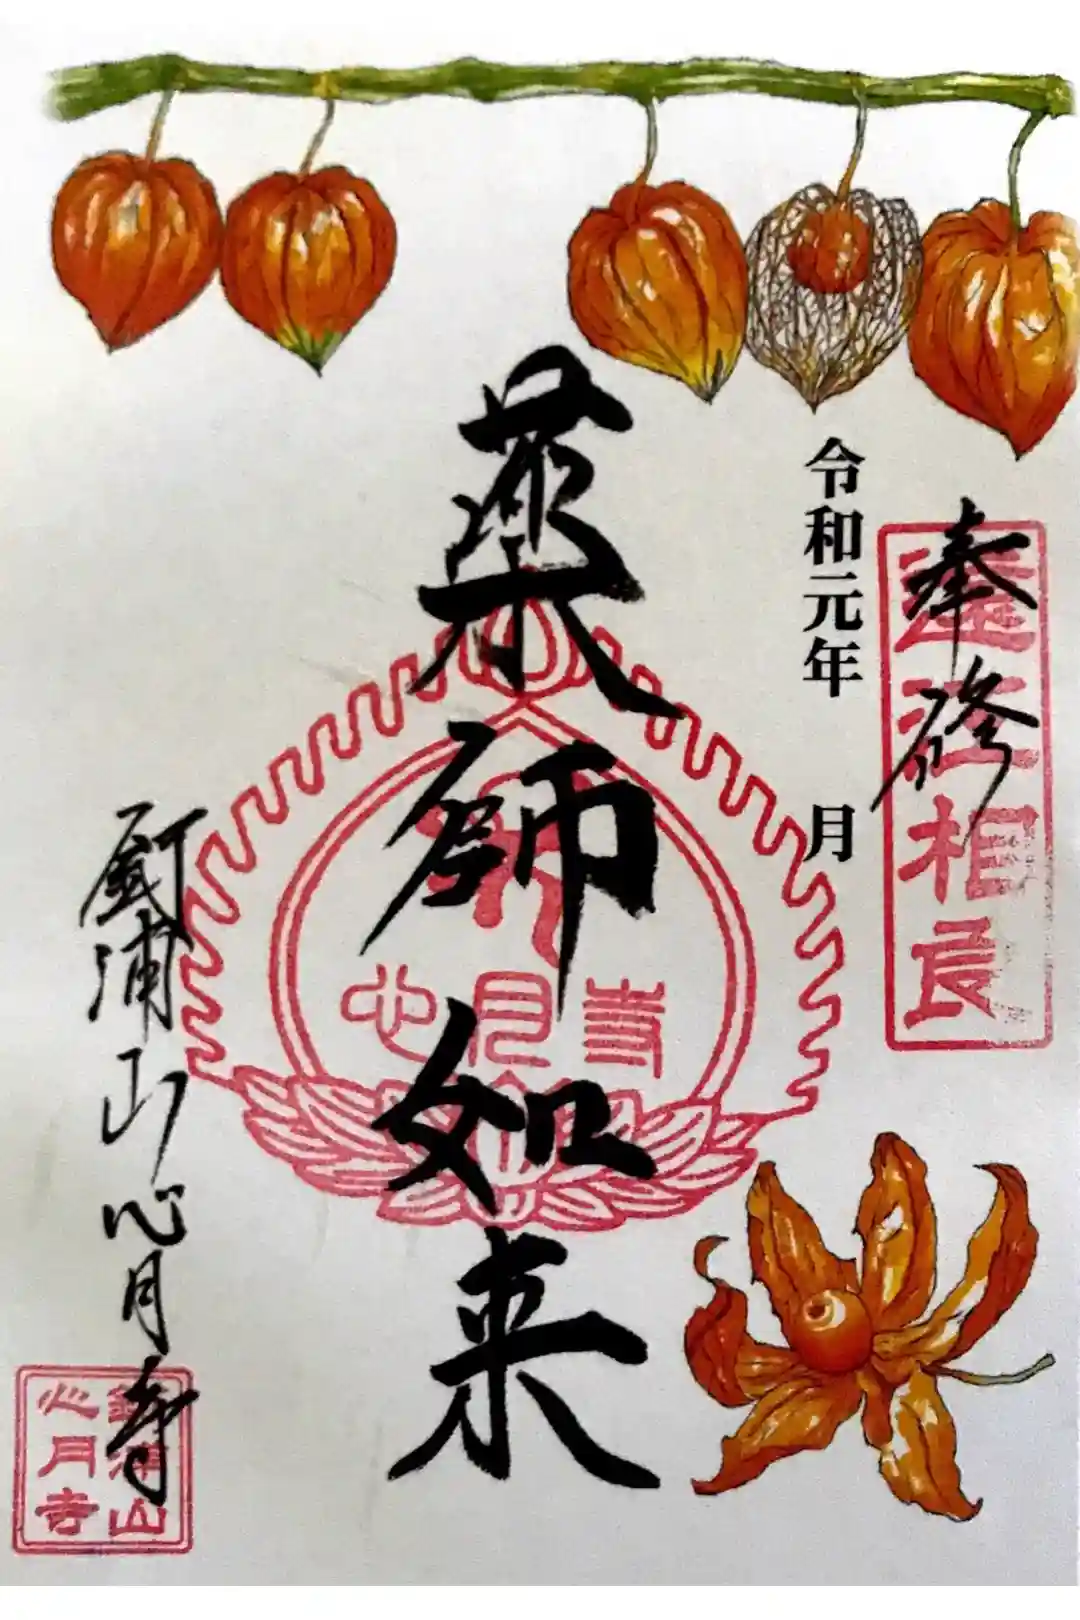 奉修
遠江相良
令和元年　月
薬師如来
心月寺
釼浦山心月寺
釼浦山
心月寺